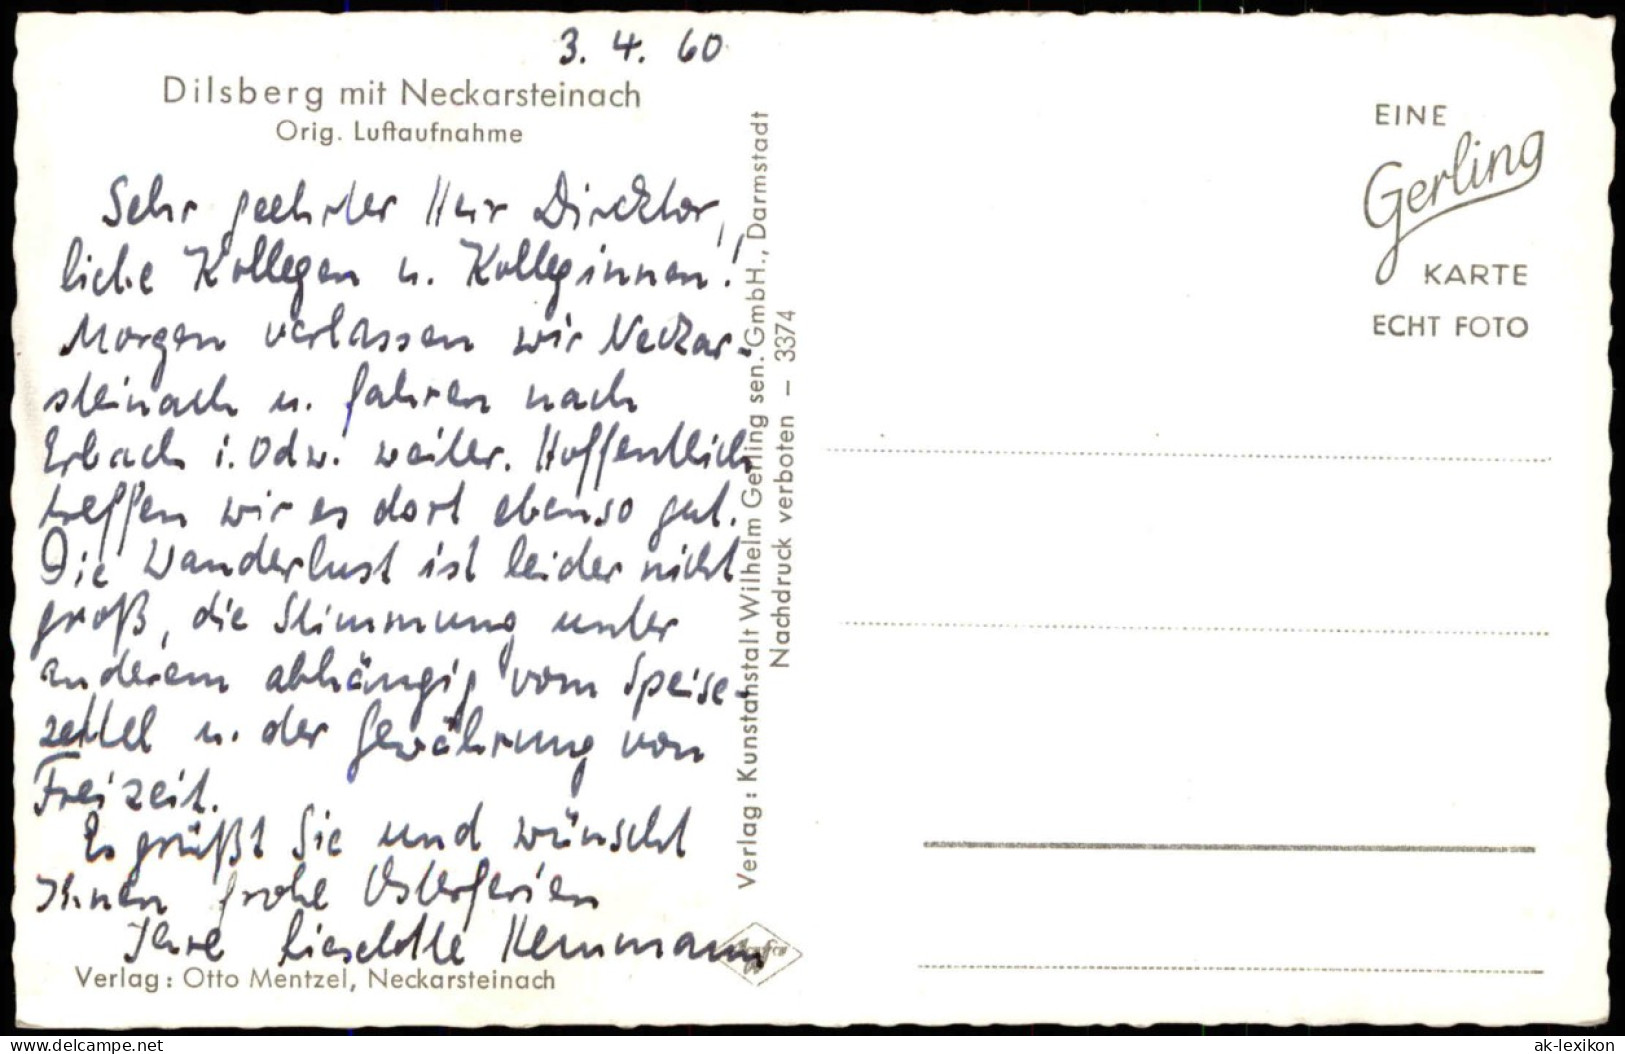 3. 4. 60
Dilsberg mit Neckarsteinach
Orig. Luftaufnahme
Sehr geehrter Herr Direktor,
liebe Kollegen u. Kolleginnen!
Morgen verlassen wir Neckar-
steinach u. fahren nach
Erbach i. Odw. weiter. Hoffentlich
treffen wir es dort ebenso gut.
Die Wanderlust ist leider nicht
groß, die Stimmung unter
anderem abhängig vom Speise-
zettel u. der Gewährung von
Freizeit.
Es grüßt Sie und wünscht
Ihnen frohe Osterferien
Ihre Lieselotte
Verlag: Otto Mentzel, Neckarsteinach
Verlag: Kunstanstalt Wilhelm Gerling sen. GmbH., Darmstadt
Nachdruck verboten — 3374
EINE
Gerling
KARTE
ECHT FOTO
delcampe.net
ak-lexikon